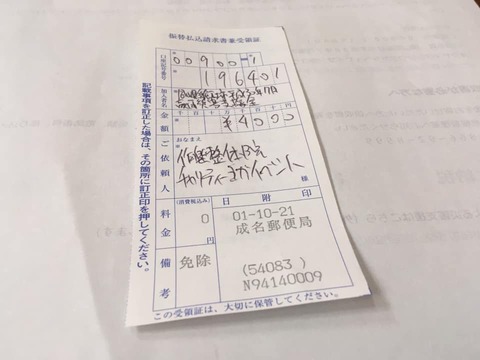 振替払込請求書兼受領証
口座記号番号
00900-1
196401
加入者名
金額
千百十万千百十円
¥4000
ご依頼人
おなまえ
整体院
チャリティーヨガイベント
様
料金
(消費税込み)
0
円
日附印
01-10-21
成名郵便局
備考
免除
(54083)
N94140009
この受領証は、大切に保管してください。
記載事項を訂正した場合は、その箇所に訂正印を押してください。